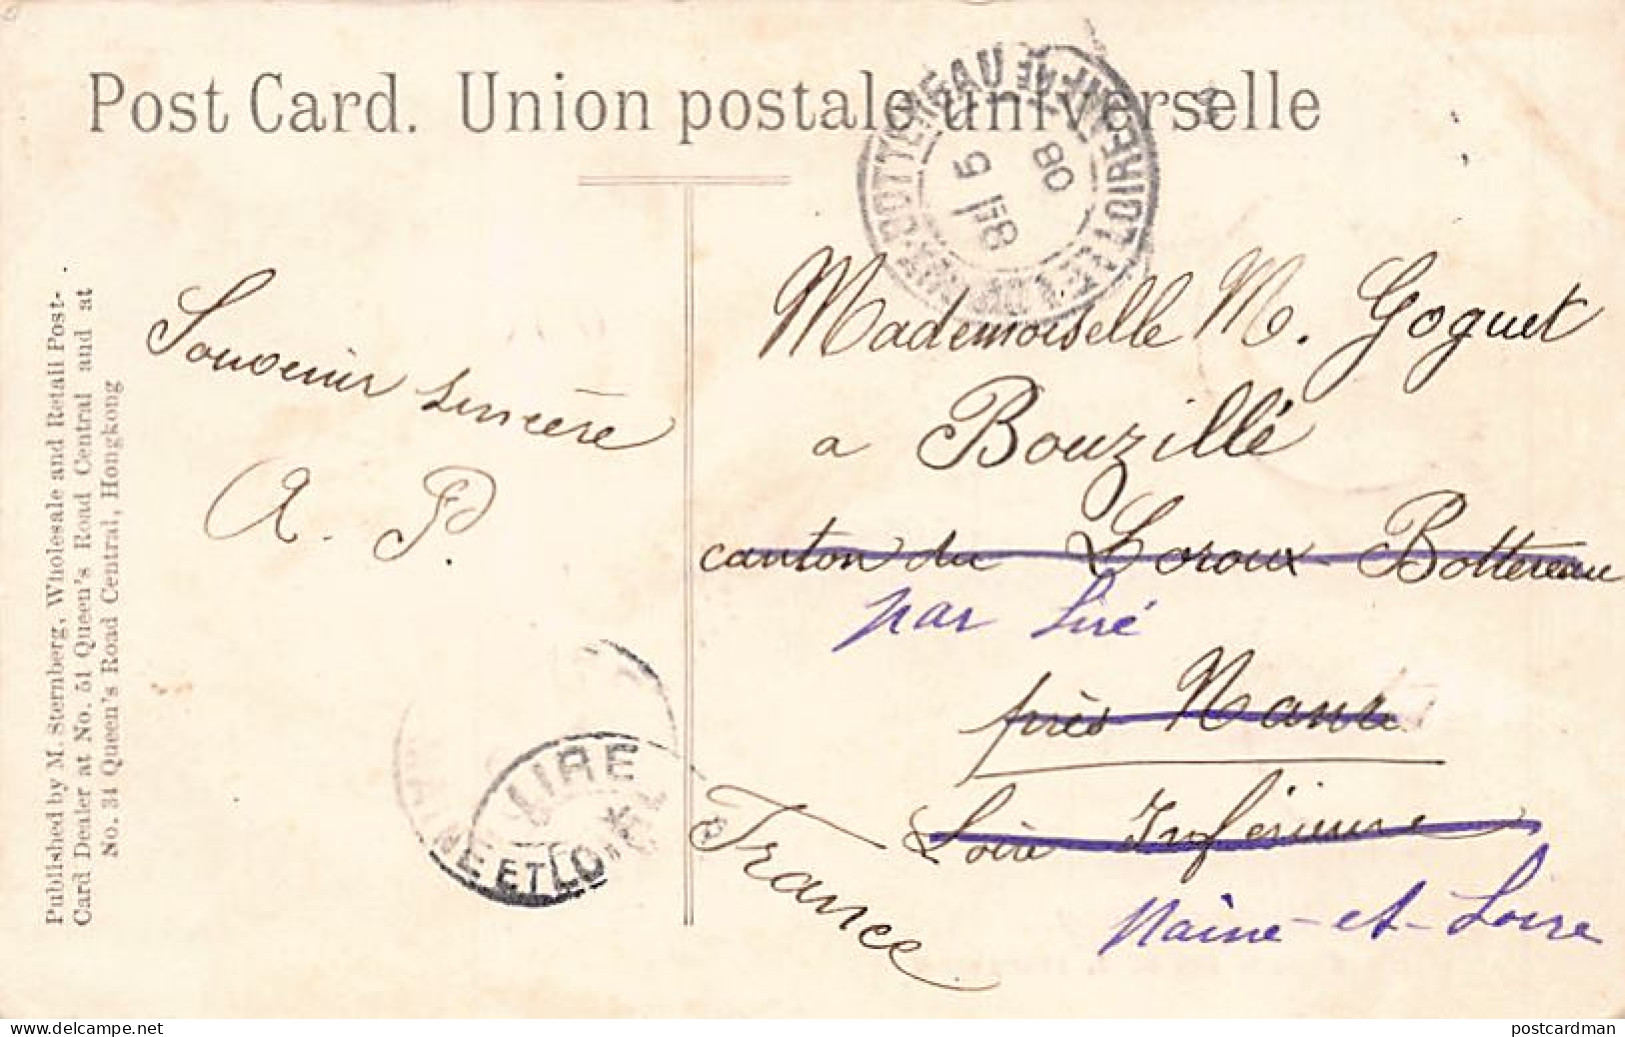 Post Card. Union postale universelle
Published by M. Sternberg, Wholesale and Retail Post-
Card Dealer at No. 51 Queen's Road Central and at
No. 34 Queen's Road Central, Hongkong
Souvenir sincère
A. P.
BOTTEREAU
LOIRE INFRE
5
08
Mademoiselle M. Goguet
a Bouzillé
canton du Loroux Bottereau
par Liré
près Nante
Loire Inférieure
Maine-et-Loire
France
LIRE
MAINE ET LOIRE
www.delcampe.net
postcardman